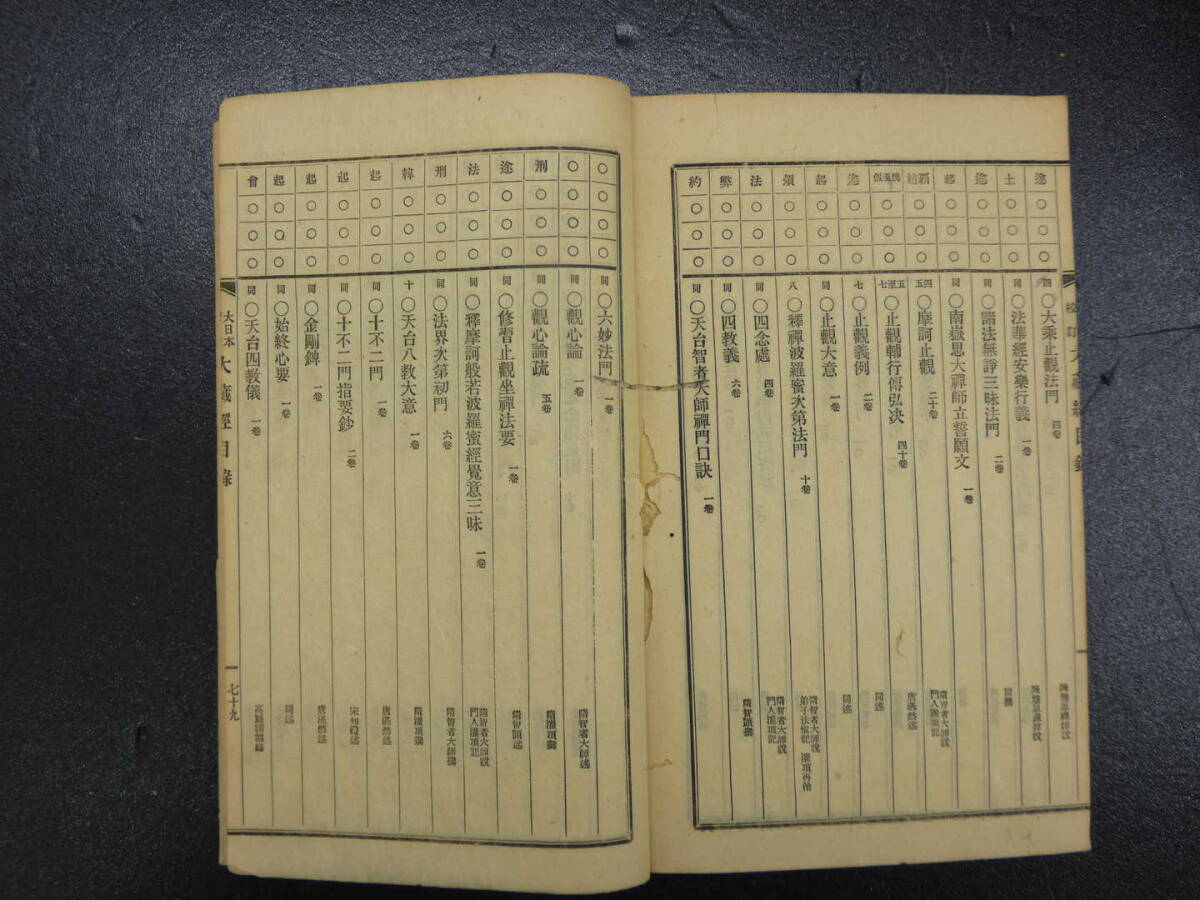 途 ○ ○ ○ 四 ○大乘止觀法門 四卷 陳慧思禪師說
土 ○ ○ ○ 同 ○法華經安樂行義 一卷 陳慧思禪師說
途 ○ ○ ○ 同 ○諸法無諍三昧法門 二卷 同撰
起 ○ ○ ○ 同 ○南嶽思大禪師立誓願文 一卷
○ ○ ○ 四五 ○摩訶止觀 二十卷 隋智者大師說 門人灌頂記
○ ○ ○ 五至七 ○止觀輔行傳弘決 四十卷 唐湛然述
途 ○ ○ ○ 七 ○止觀義例 二卷 同述
起 ○ ○ ○ 同 ○止觀大意 一卷 同述
○ ○ ○ 八 ○釋禪波羅蜜次第法門 十卷 隋智者大師說 弟子法愼記 灌頂再治
法 ○ ○ ○ 同 ○四念處 四卷 隋智者大師說 門人灌頂記
弊 ○ ○ ○ 同 ○四教義 六卷 隋智顗撰
約 ○ ○ ○ 同 ○天台智者大師禪門口訣 一卷
○ ○ ○ ○ 同 ○六妙法門 一卷 隋智者大師述
○ ○ ○ ○ 同 ○觀心論 一卷
刑 ○ ○ ○ 同 ○觀心論疏 五卷 隋灌頂撰
途 ○ ○ ○ 同 ○修習止觀坐禪法要 一卷 隋智顗述
法 ○ ○ ○ 同 ○釋摩訶般若波羅蜜經覺意三昧 一卷 隋智者大師說 門人灌頂記
刑 ○ ○ ○ 同 ○法界次第初門 六卷 隋智者大師撰
韓 ○ ○ ○ 十 ○天台八教大意 一卷 隋灌頂撰
起 ○ ○ ○ 同 ○十不二門 一卷 唐湛然述
起 ○ ○ ○ 同 ○十不二門指要鈔 二卷 宋知禮述
起 ○ ○ ○ 同 ○金剛錍 一卷 唐湛然述
起 ○ ○ ○ 同 ○始終心要 一卷 同述
會 ○ ○ ○ 同 ○天台四教儀 一卷 高麗諦觀錄
大日本 大藏經目錄 七十九